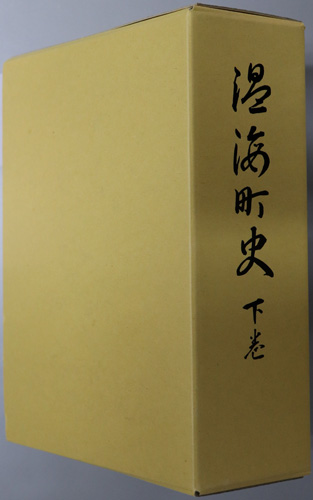 温海町史 下巻